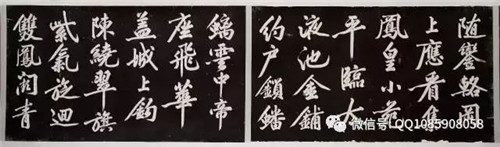 隨鑾輅岡
上應看集
鳳皇小苑
平臨太
液池金鋪
約户鎖蟠
螭雲中帝
座飛華
蓋城上鈎
陳繞翠旗
紫氣旋迴
雙鳳闕青
微信号: QQ1085908058